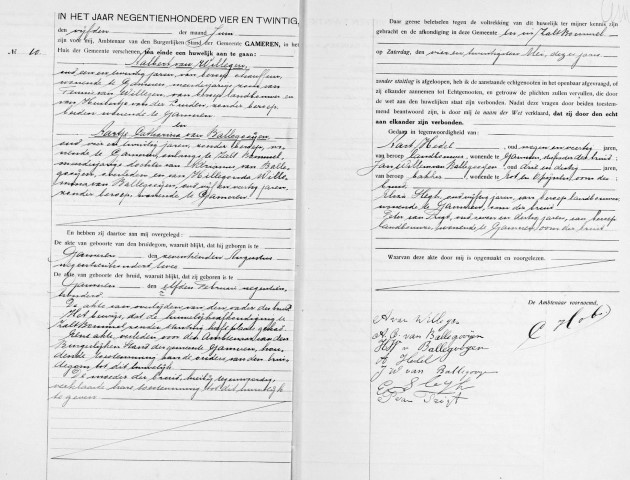 IN HET JAAR NEGENTIENHONDERD VIER EN TWINTIG,
den vijfden der maand Juni
zijn voor mij, Ambtenaar van den Burgerlijken Stand der Gemeente GAMEREN, in het
No. 10.
Huis der Gemeente verschenen, ten einde een huwelijk aan te gaan:
van Willigen,
oud een en twintig jaren, van beroep
wonende te Gameren, meerderjarige zoon van
van Willigen, van beroep landbouwer en
van van der Linden, zonder beroep,
beiden wonende te Gameren
en
Catharina van Ballegooijen,
oud vier en twintig jaren, zonder beroep, wo-
nende te Gameren, onlangs te Zalt Bommel,
meerderjarige dochter van van Balle-
gooijen, overleden en van Willemi-
na van Ballegooijen, oud vijf en veertig jaren,
zonder beroep, wonende te Gameren.
En hebben zij daartoe aan mij overgelegd:
De akte van geboorte van den bruidegom, waaruit blijkt, dat hij geboren is te
Gameren den zeventienden Augustus
negentienhonderd twee
De akte van geboorte der bruid, waaruit blijkt, dat zij geboren is te
Gameren den elfden Februari negentien-
honderd.
De akte van overlijden van den vader der bruid.
Het bewijs, dat de huwelijksafkondiging te
Zalt Bommel zonder stuiting heeft plaats gehad.
Eene akte verleden voor den Ambtenaar van den
Burgerlijken Stand der gemeente Gameren, hou-
dende toestemming van de ouders van den brui-
degom tot dit huwelijk.
De moeder der bruid, hierbij tegenwoordig,
verklaarde hare toestemming tot dit huwelijk
te geven.
Daar geene beletselen tegen de voltrekking van dit huwelijk ter mijner kennis zijn
gebracht en de afkondiging in deze Gemeente en in Zalt Bommel
op Zaterdag, den vier en twintigsten Mei, dezer jare
zonder stuiting is afgeloopen, heb ik de aanstaande echtgenooten in het openbaar afgevraagd, of
zij elkander aannemen tot Echtgenooten, en getrouw de plichten zullen vervullen, die door
de wet aan den huwelijken staat zijn verbonden. Nadat deze vragen door beiden toestem-
mend beantwoord zijn, is door mij in naam der Wet verklaard, dat zij door den echt
aan elkander zijn verbonden.
Gedaan in tegenwoordigheid van:
Hadel, oud negen en veertig jaren,
van beroep landbouwer, wonende te Gameren, der bruid
Jan Willem van Ballegooijen, oud drie en dertig jaren,
van beroep bakker, wonende te Rot en Opijnen, oom der
bruid
oud vijftig jaren, van beroep landbouwer,
wonende te Gameren, oom der bruid
Peter van Trigt, oud zeven en dertig jaren, van beroep
landbouwer, wonende te Gameren, oom der bruid
Waarvan deze akte door mij is opgemaakt en voorgelezen.
De Ambtenaar voornoemd,
A van Willigen
A. C. van Ballegooijen
H W v Ballegooijen
J W van Ballegooijen
P van Trigt